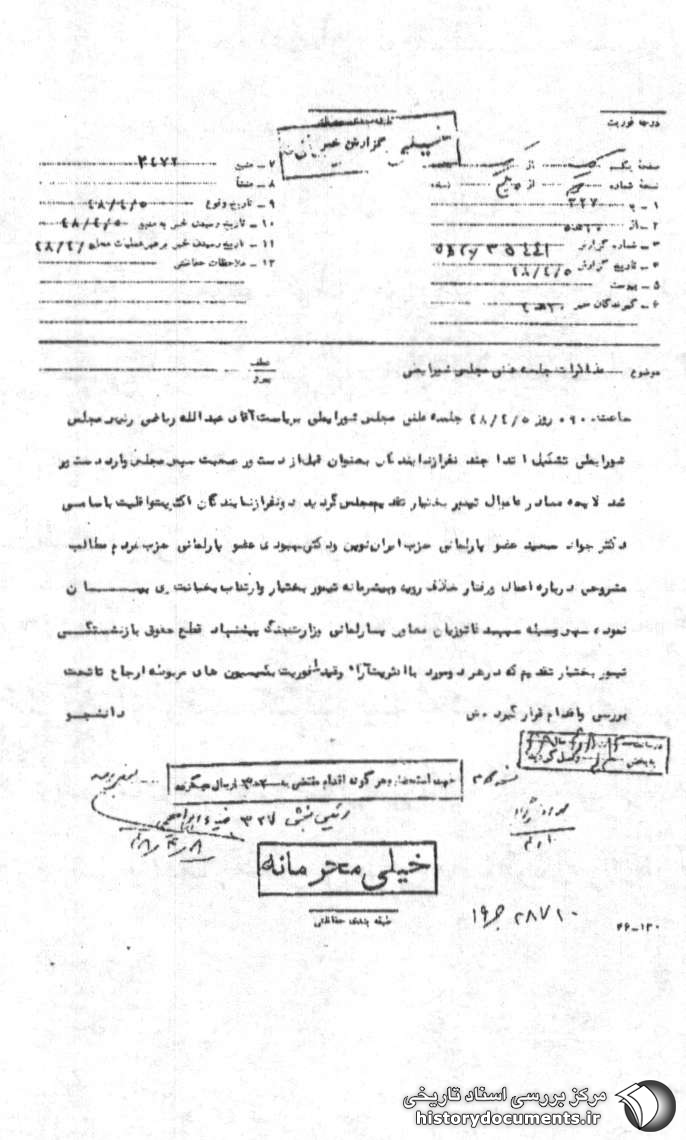 درجه فوریت
طبقه بندی حفاظتی
گزارش خبر
خیلی محرمانه
صفحه یک از
نسخه شماره از نسخه
۱ - به ۳۲۷
۲ - از ۱۰ ه ۵
۳ - شماره گزارش
۴ - تاریخ گزارش ۴۸/۴/۵
۵ - پیوست
۶ - گیرندگان خبر
۷ - منبع ۳۴۷۲
۸ - منشأ
۹ - تاریخ وقوع ۴۸/۴/۵
۱۰ - تاریخ رسیدن خبر به منبع ۴۸/۴/۵
۱۱ - تاریخ رسیدن خبر به رهبر عملیات محلی ۴۸/۴/
۱۲ - ملاحظات حفاظتی
موضوع مذاکرات جلسه علنی مجلس شورایملی
عطف
پیرو
ساعت ۰۹۰۰ روز ۴۸/۴/۵ جلسه علنی مجلس شورایملی بریاست آقای عبدالله ریاضی رئیس مجلس
شورایملی تشکیل ابتدا چند نفر از نمایندگان بعنوان قبل از دستور صحبت سپس مجلس وارد دستور
شد لایحه مصادره اموال تیمور بختیار تقدیم مجلس گردید دو نفر از نمایندگان اکثریت و اقلیت باسامی
دکتر جواد سعید عضو پارلمانی حزب ایران نوین و دکتر بهبودی عضو پارلمانی حزب مردم مطالب
مشروحی درباره اعمال و رفتار خلاف رویه و بیشرمانه تیمور بختیار و ارتکاب بخیانت وی بیــان
نموده سپس وسیله سپهبد کاتوزیان معاون پارلمانی وزارت جنگ پیشنهاد قطع حقوق بازنشستگی
تیمور بختیار تقدیم که در هر دو مورد با اکثریت آراء و قید فوریت بکمیسیون های مربوطه ارجاع تا تحت
بررسی و اقدام قرار گیرد. ش
دانشجو
جهت استحضار و هر گونه اقدام مقتضی به ارسال میگردد
رئیس بخش ۳۲۷
۴۸/۴/۸
خیلی محرمانه
طبقه بندی حفاظتی
۲۸۷۱۰
۴۶-۱۲۰
مرکز بررسی اسناد تاریخی
historydocuments.ir